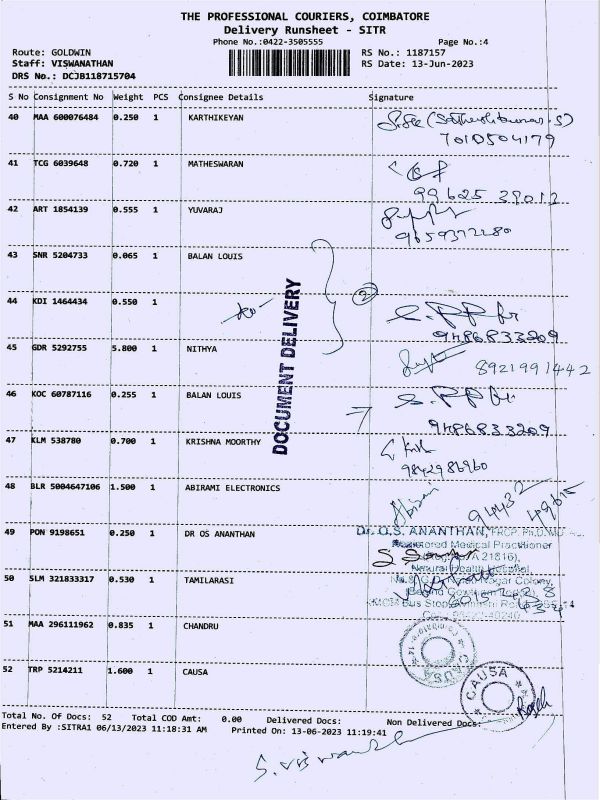 THE PROFESSIONAL COURIERS, COIMBATORE
Delivery Runsheet - SITR
Phone No.:0422-3505555 Page No.:4
Route: GOLDWIN RS No.: 1187157
Staff: VISWANATHAN RS Date: 13-Jun-2023
DRS No.: DCJB118715704
S No Consignment No Weight PCS Consignee Details Signature
40 MAA 600076484 0.250 1 KARTHIKEYAN
7010504179
41 TCG 6039648 0.720 1 MATHESWARAN
99625 39012
42 ART 1854139 0.555 1 YUVARAJ
9659372280
43 SNR 5204733 0.065 1 BALAN LOUIS
2
44 KDI 1464434 0.550 1
9486833209
DOCUMENT DELIVERY
45 GDR 5292755 5.800 1 NITHYA 8921991442
46 KOC 60787116 0.255 1 BALAN LOUIS
9486833209
47 KLM 538780 0.700 1 KRISHNA MOORTHY
9842986960
48 BLR 5004647106 1.500 1 ABIRAMI ELECTRONICS
49 PON 9198651 0.250 1 DR OS ANANTHAN Dr. O.S. ANANTHAN,
Registered Medical Practitioner
Natural Health Hospital,
50 SLM 321833317 0.530 1 TAMILARASI
51 MAA 296111962 0.835 1 CHANDRU
CAUSA
52 TRP 5214211 1.600 1 CAUSA CAUSA
Total No. Of Docs: 52 Total COD Amt: 0.00 Delivered Docs: Non Delivered Docs:
Entered By :SITRA1 06/13/2023 11:18:31 AM Printed On: 13-06-2023 11:19:41